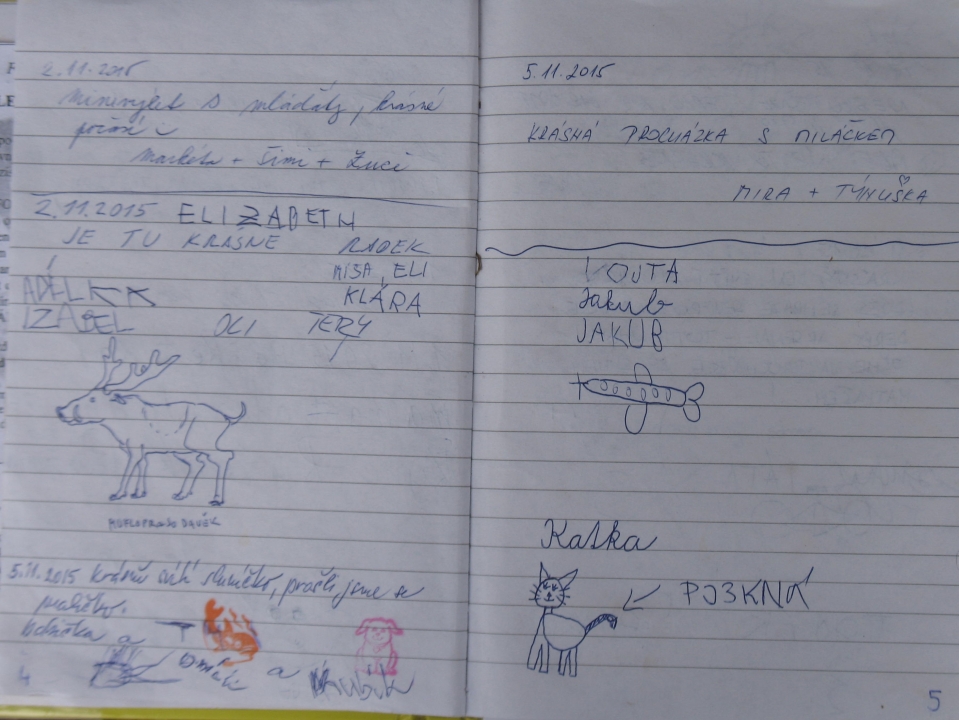 2.11.2015
Minivýlet s mláďaty, krásné
počasí
Markéta + Šimi + Žuci
2.11.2015 ELIZABETH
JE TU KRÁSNE RADEK
MISA, ELI
ADÉLKK KLÁRA
IZABEL OLI TERY
MUFLOPRASODANĚK
5.11.2015 krásně svítí sluníčko, prošli jsme se
a T
omáš a Kubík
4
5.11.2015
KRÁSNÁ PROCHÁZKA S MILÁČKEM
MIRA + TÝNUŠKA
VOJTA
Jakub
JAKUB
Katka
PJ3KNÁ
5